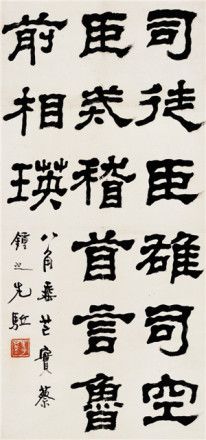 司徒臣雄司空
臣戒稽首言魯
前相瑛
八角垂芒實蔡
鍾之先駈